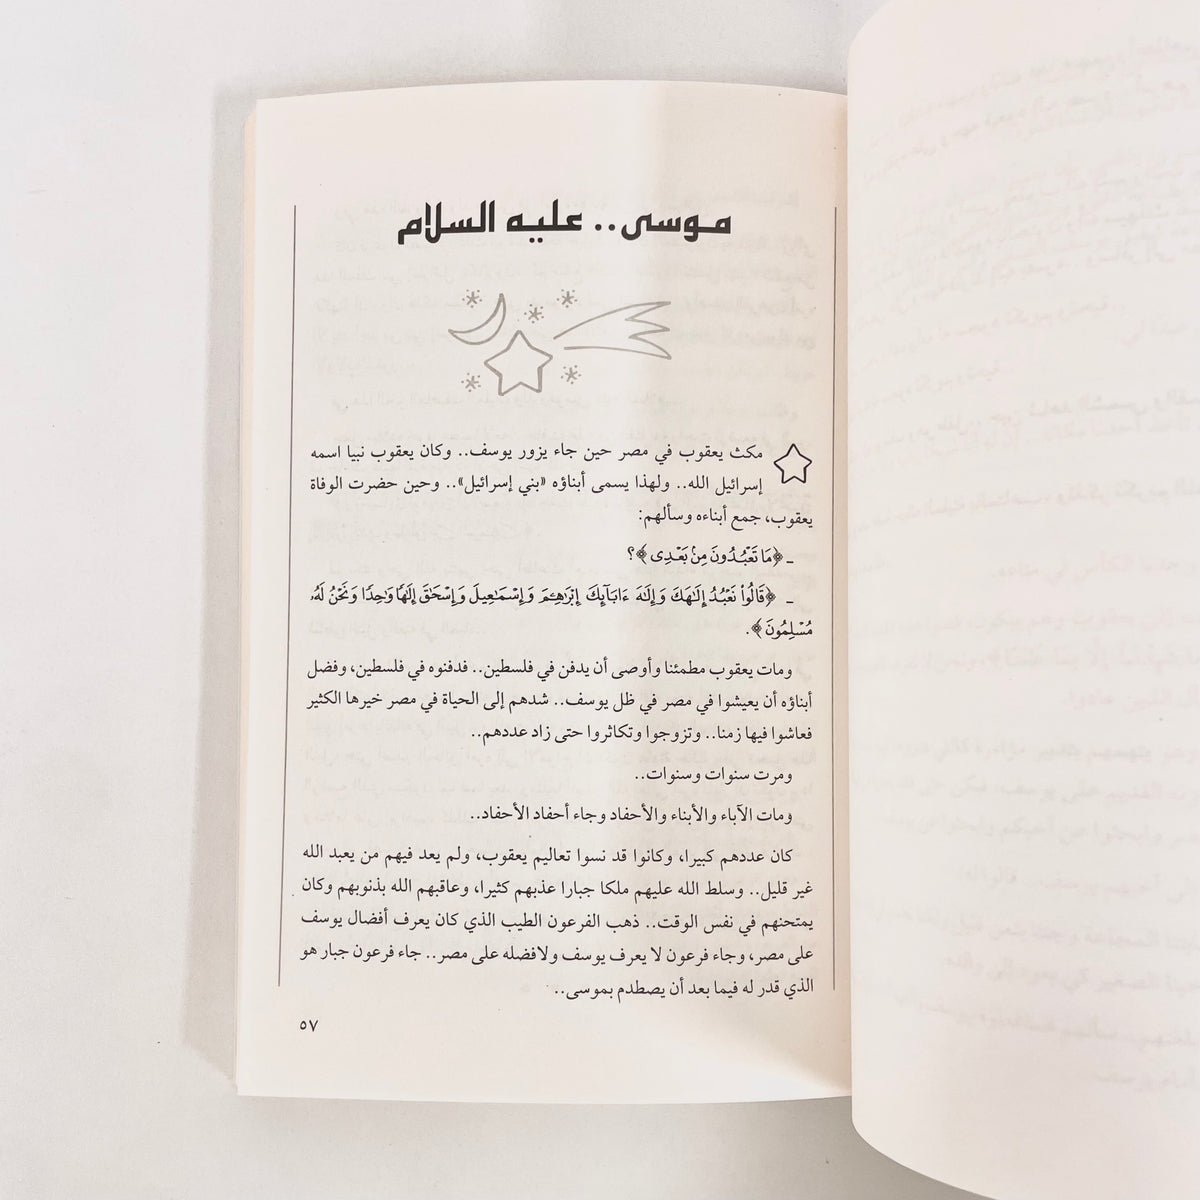 موسى.. عليه السلام
مكث يعقوب في مصر حين جاء يزور يوسف.. وكان يعقوب نبيا اسمه
إسرائيل الله.. ولهذا يسمى أبناؤه «بني إسرائيل».. وحين حضرت الوفاة
يعقوب، جمع أبناءه وسألهم:
ـ ﴿مَا تَعْبُدُونَ مِنۢ بَعْدِى﴾؟
ـ ﴿قَالُوا۟ نَعْبُدُ إِلَٰهَكَ وَإِلَٰهَ ءَابَآئِكَ إِبْرَٰهِۦمَ وَإِسْمَٰعِيلَ وَإِسْحَٰقَ إِلَٰهًا وَٰحِدًا وَنَحْنُ لَهُۥ
مُسْلِمُونَ﴾.
ومات يعقوب مطمئنا وأوصى أن يدفن في فلسطين.. فدفنوه في فلسطين، وفضل
أبناؤه أن يعيشوا في مصر في ظل يوسف.. شدهم إلى الحياة في مصر خيرها الكثير
فعاشوا فيها زمنا.. وتزوجوا وتكاثروا حتى زاد عددهم..
ومرت سنوات وسنوات..
ومات الآباء والأبناء والأحفاد وجاء أحفاد الأحفاد..
كان عددهم كبيرا، وكانوا قد نسوا تعاليم يعقوب، ولم يعد فيهم من يعبد الله
غير قليل.. وسلط الله عليهم ملكا جبارا عذبهم كثيرا، وعاقبهم الله بذنوبهم وكان
يمتحنهم في نفس الوقت.. ذهب الفرعون الطيب الذي كان يعرف أفضال يوسف
على مصر، وجاء فرعون لا يعرف يوسف ولافضله على مصر.. جاء فرعون جبار هو
الذي قدر له فيما بعد أن يصطدم بموسى..
٥٧